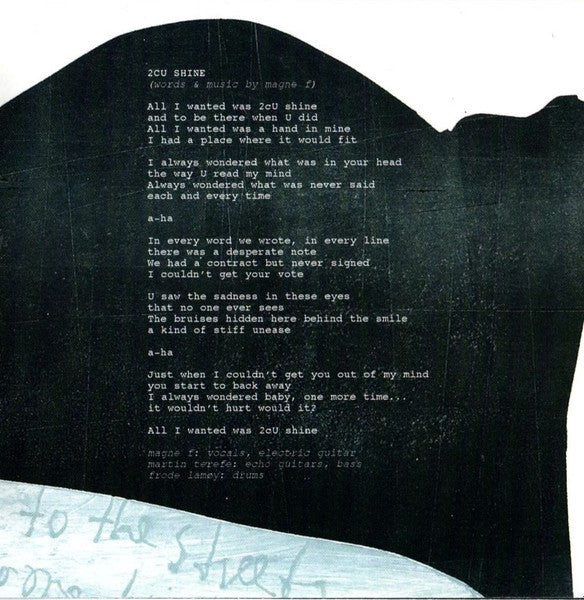 2CU SHINE
(words & music by magne f)
All I wanted was 2cU shine
and to be there when U did
All I wanted was a hand in mine
I had a place where it would fit
I always wondered what was in your head
the way U read my mind
Always wondered what was never said
each and every time
a-ha
In every word we wrote, in every line
there was a desperate note
We had a contract but never signed
I couldn't get your vote
U saw the sadness in these eyes
that no one ever sees
The bruises hidden here behind the smile
a kind of stiff unease
a-ha
Just when I couldn't get you out of my mind
you start to back away
I always wondered baby, one more time...
it wouldn't hurt would it?
All I wanted was 2cU shine
magne f: vocals, electric guitar
martin terefe: echo guitars, bass
frode lamøy: drums
to the street